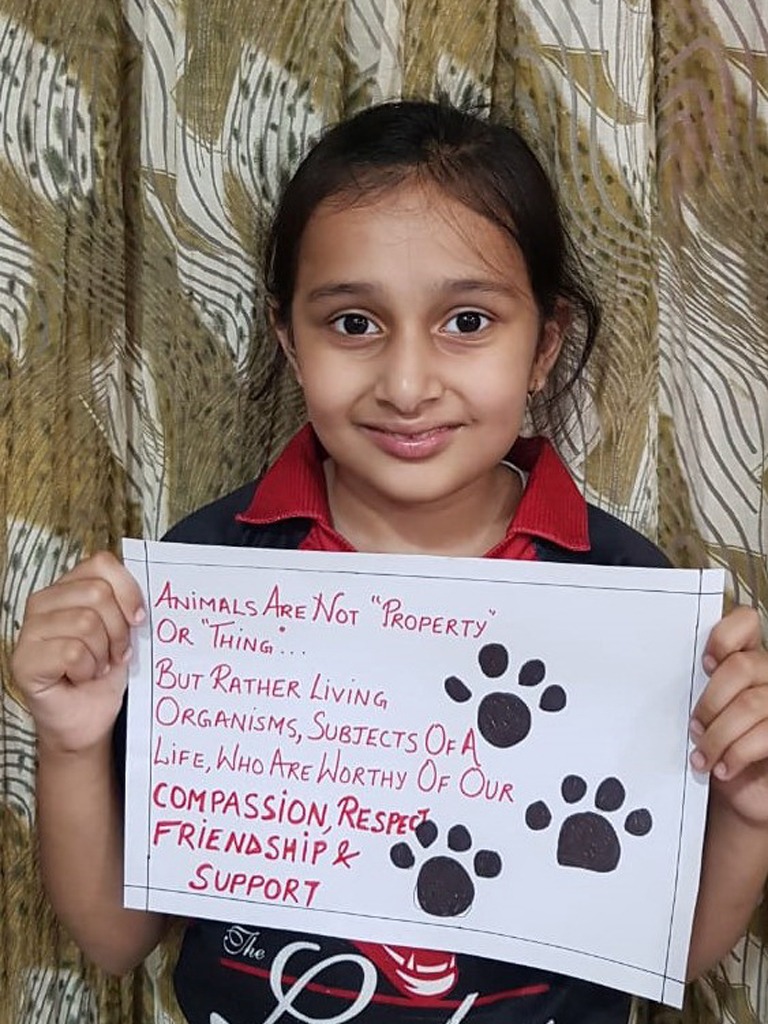 Animals Are Not "Property"
Or "Thing"...
But Rather Living
Organisms, Subjects Of A
Life, Who Are Worthy Of Our
COMPASSION, RESPECT
FRIENDSHIP &
SUPPORT
The